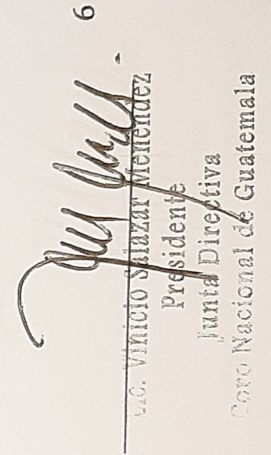 6
Lic. Vinicio Salazar Menéndez
Presidente
Junta Directiva
Coro Nacional de Guatemala